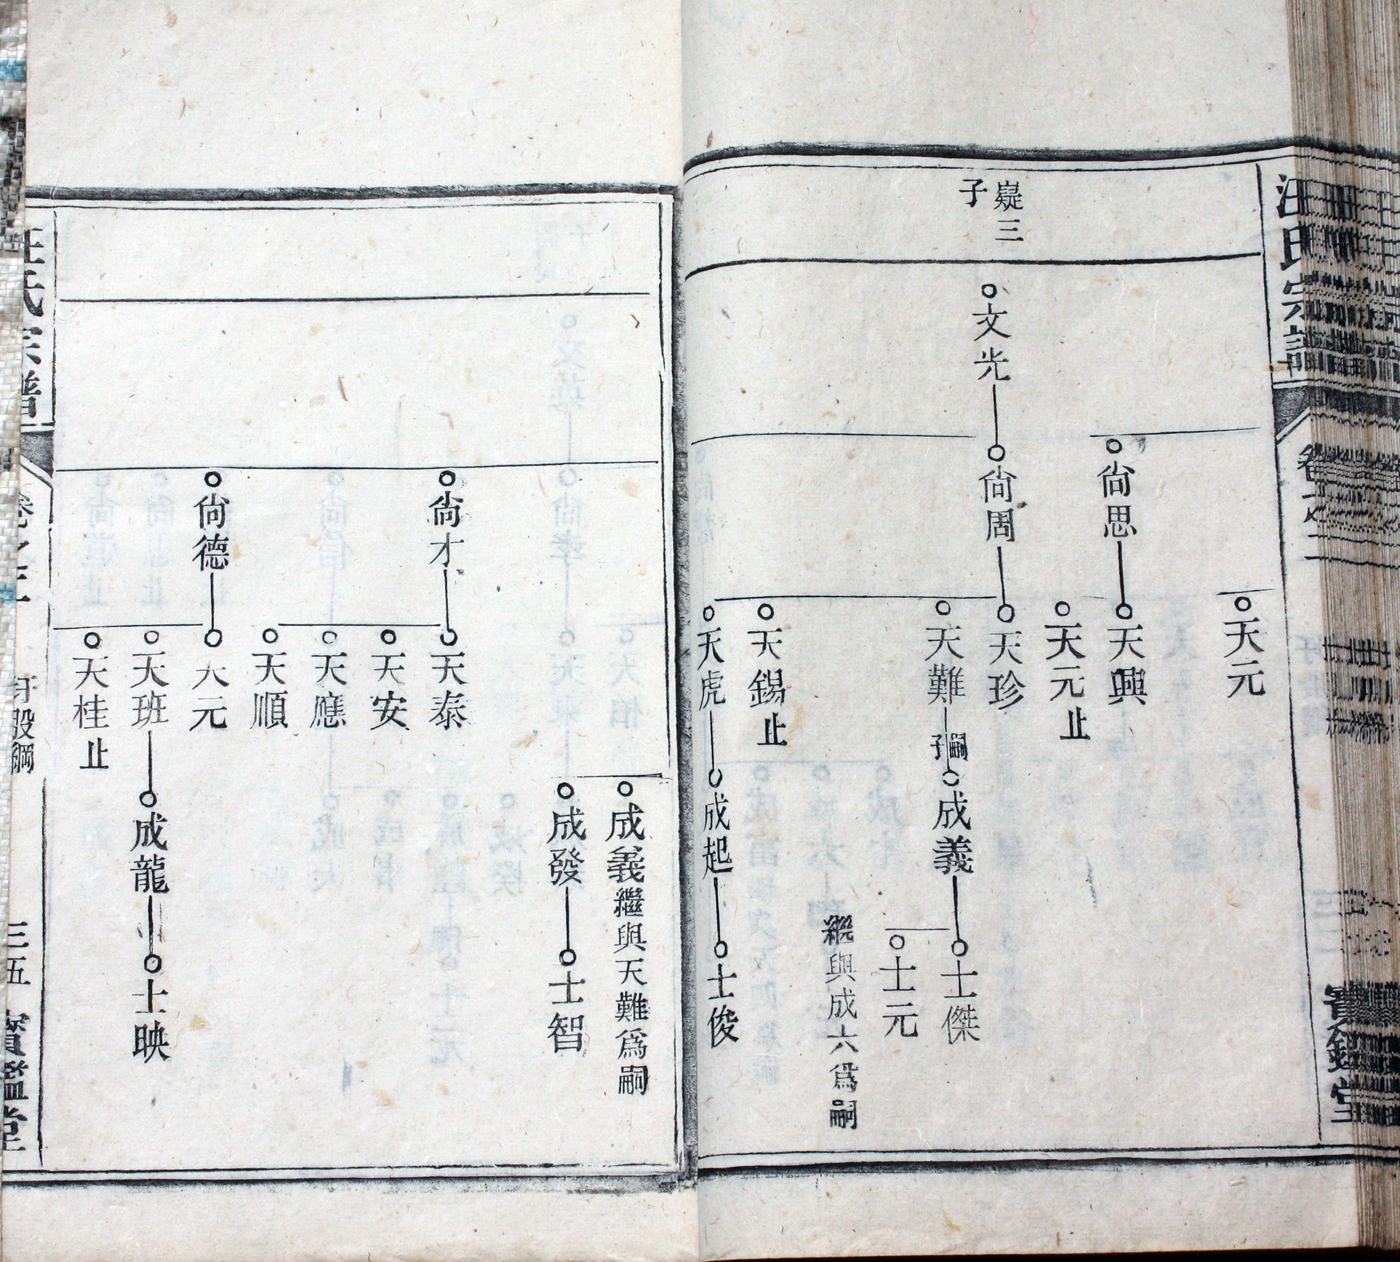 汪氏宗譜
卷之二
寶鑑堂
嶷三
子
天元
尙思
天興
天元止
文光
尙周
天珍
天難
成義
士傑
士元
繼與成六爲嗣
天錫止
天虎
成起
士俊
成義繼與天難爲嗣
成發
士智
尙才
天泰
天安
天應
天順
尙德
天元
天班
成龍
士映
天桂止
汪氏宗譜
卷之二
三五
寶鑑堂